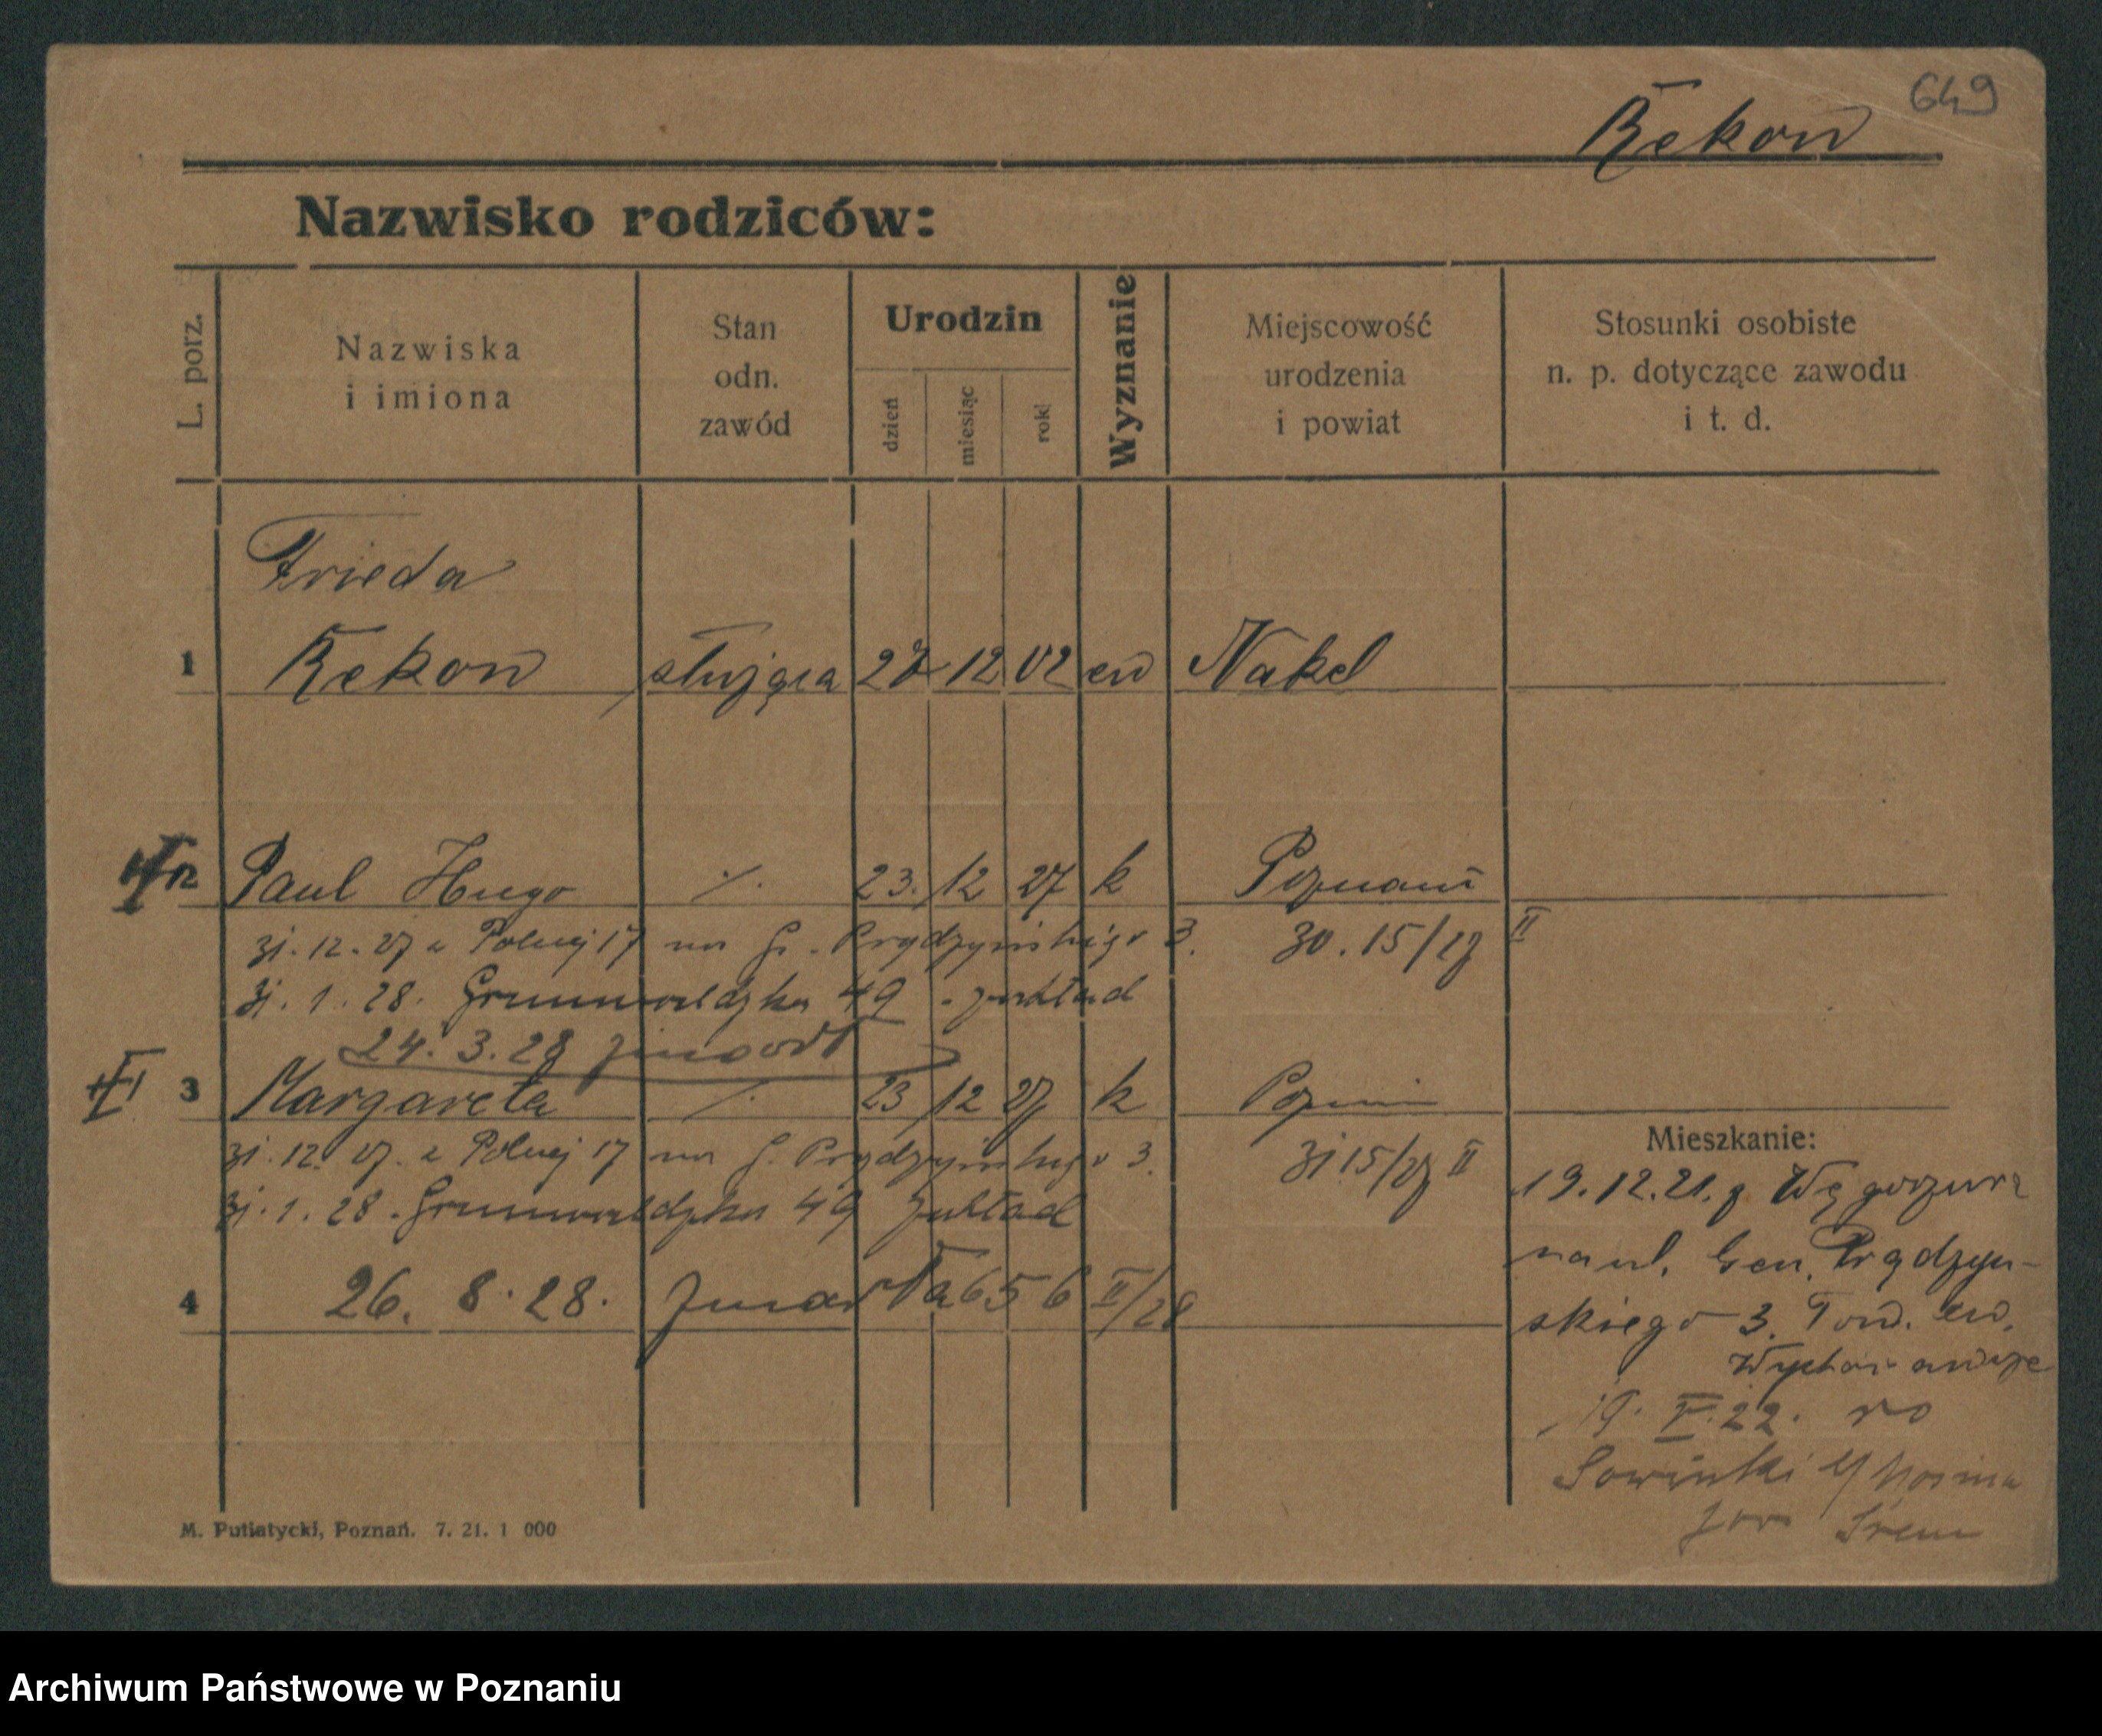 649
Rekow
Nazwisko rodziców:
L. porz.
Nazwiska
i imiona
Stan
odn.
zawód
Urodzin
dzień
miesiąc
rok
Wyznanie
Miejscowość
urodzenia
i powiat
Stosunki osobiste
n. p. dotyczące zawodu
i t. d.
Frieda
1 Rekow służąca 27 12 02 ew Nakel
2 Paul Hugo ./. 23. 12 27 k Poznań
31.12.27 z Polnej 17 na G. Prądzyńskiego 3. 30.15/27 II
31.1.28. Grunwaldzka 49 - zakład
24.3.28 zmarł
3 Margareta ./. 23 12 27 k Poznań
31.12.27. z Polnej 17 na G. Prądzyńskiego 3. 31 15/27 II
31.1.28. Grunwaldzka 49 zakład
4 26. 8. 28. zmarła 656 II/28
Mieszkanie:
19.12.21. z
na ul. Gen. Prądzyń-
skiego 3. Tow. ew.
19. V. 22. do
Śrem
M. Putiatycki, Poznań. 7. 21. 1 000
Archiwum Państwowe w Poznaniu